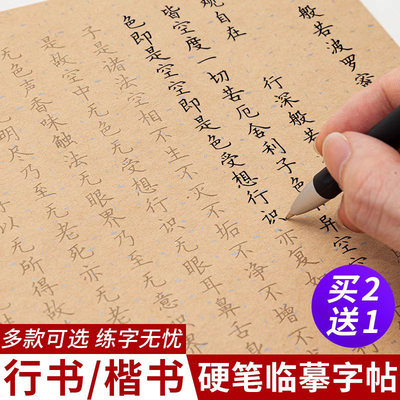 般若波罗蜜
观自在
行深般若
皆空度一切苦厄舍利子色
异空空
色即是空空即是色受想行识亦复
子是诸法空相不生不灭不垢不净不增不
是故空中无色无受想行识无眼耳鼻舌身
无色声香味触法无眼界乃至无意识
无明尽乃至无老死亦无
以无所得故
买2
送1
多款可选 练字无忧
行书/楷书 硬笔临摹字帖